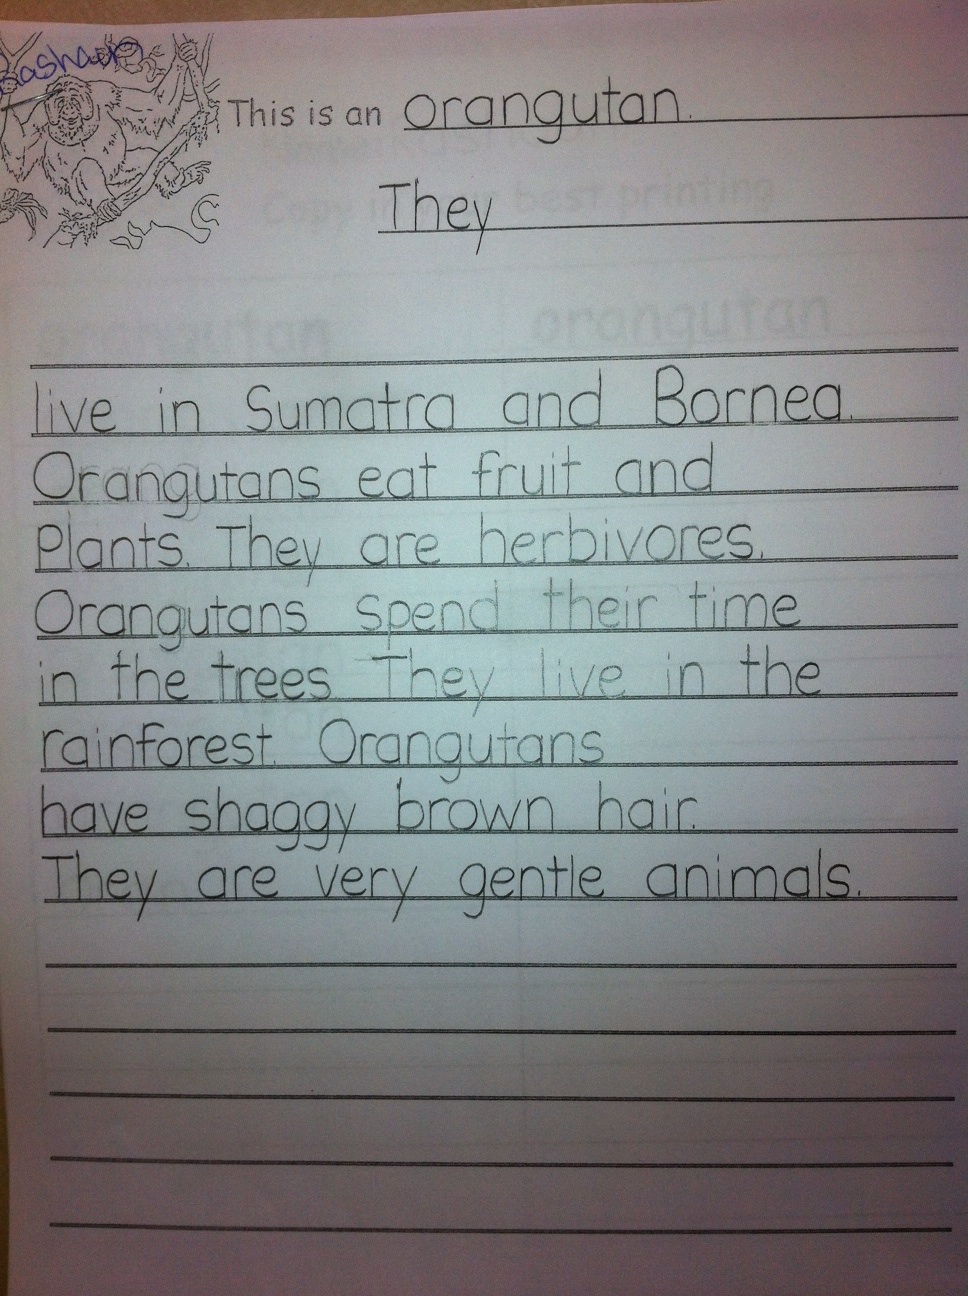 This is an orangutan.
They
live in Sumatra and Bornea.
Orangutans eat fruit and
Plants. They are herbivores.
Orangutans spend their time
in the trees. They live in the
rainforest. Orangutans
have shaggy brown hair.
They are very gentle animals.